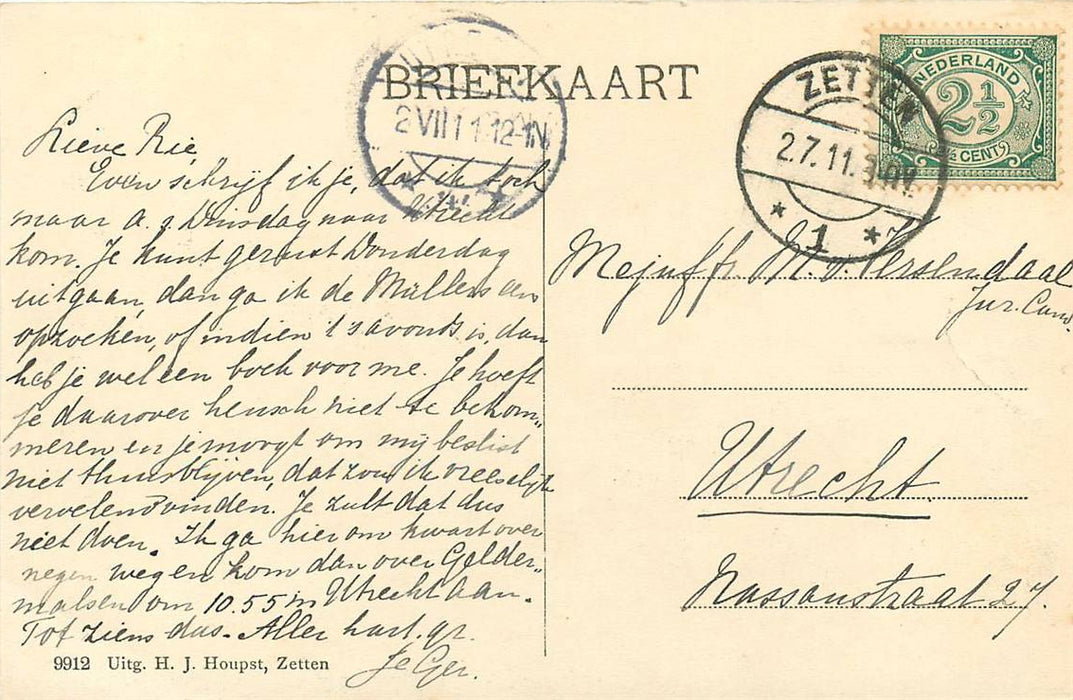 BRIEFKAART
2 VII 11 12-1N
ZETTEN
2.7.11.
1
NEDERLAND
2 1/2
CENT
Lieve Rie,
Even schrijf ik je, dat ik toch
maar a.s. Dinsdag naar Utrecht
kom. Je kunt gerust Donderdag
uitgaan, dan ga ik de Mullers eens
opzoeken, of indien 't 's avonds is, dan
heb je wel een boek voor me. Je hoeft
je daarover heusch niet te bekom„
meren en je moogt om mij beslist
niet thuisblijven, dat zou ik vreeselijk
vervelend vinden. Je zult dat dus
niet doen. Ik ga hier om kwart over
negen weg en kom dan over Gelder„
malsen om 10.55 in Utrecht aan.
Tot ziens dus. Aller hart. gr.
Je Ger.
Mejuffr. v. Versendaal
Jur. Cand.
Utrecht.
Nassaustraat 27.
9912 Uitg. H. J. Houpst, Zetten